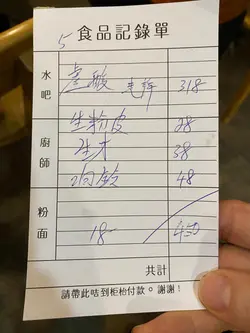 5 食品記錄單
水吧 318
廚師 生粉皮 28
生才 38
响鈴 48
粉面 18- 450
共計
請帶此咭到柜枱付款。謝謝!